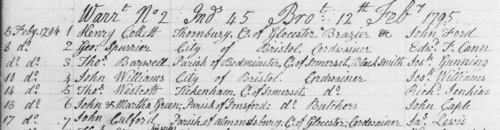 Warrt. No 2 Ind 45 Brot. 12th Feby 1795
5 Feby. 1794 1 Henry Collett Thornbury, C. of Glocester Brazier & John Ford
8 do 2 Geo. Spurrier City of Bristol Cordwainer Edw. T. Cann
do do 3 Thos. Barwell Parish of Bedminster, C. of Somerset, Black Smith Jos. Gunning
10 do 4 John Williams City of Bristol Cordwainer Jos. Williams
14 do 5 Thos. Westcott Tickenham, C. of Somerset do Richd. Jenkins
15 do 6 John & Martha Green; Parish of Butchers John Caple
17 do 7 John Parish of Almondsbury C. of Glocester; Cordwainer Jas. Lewis